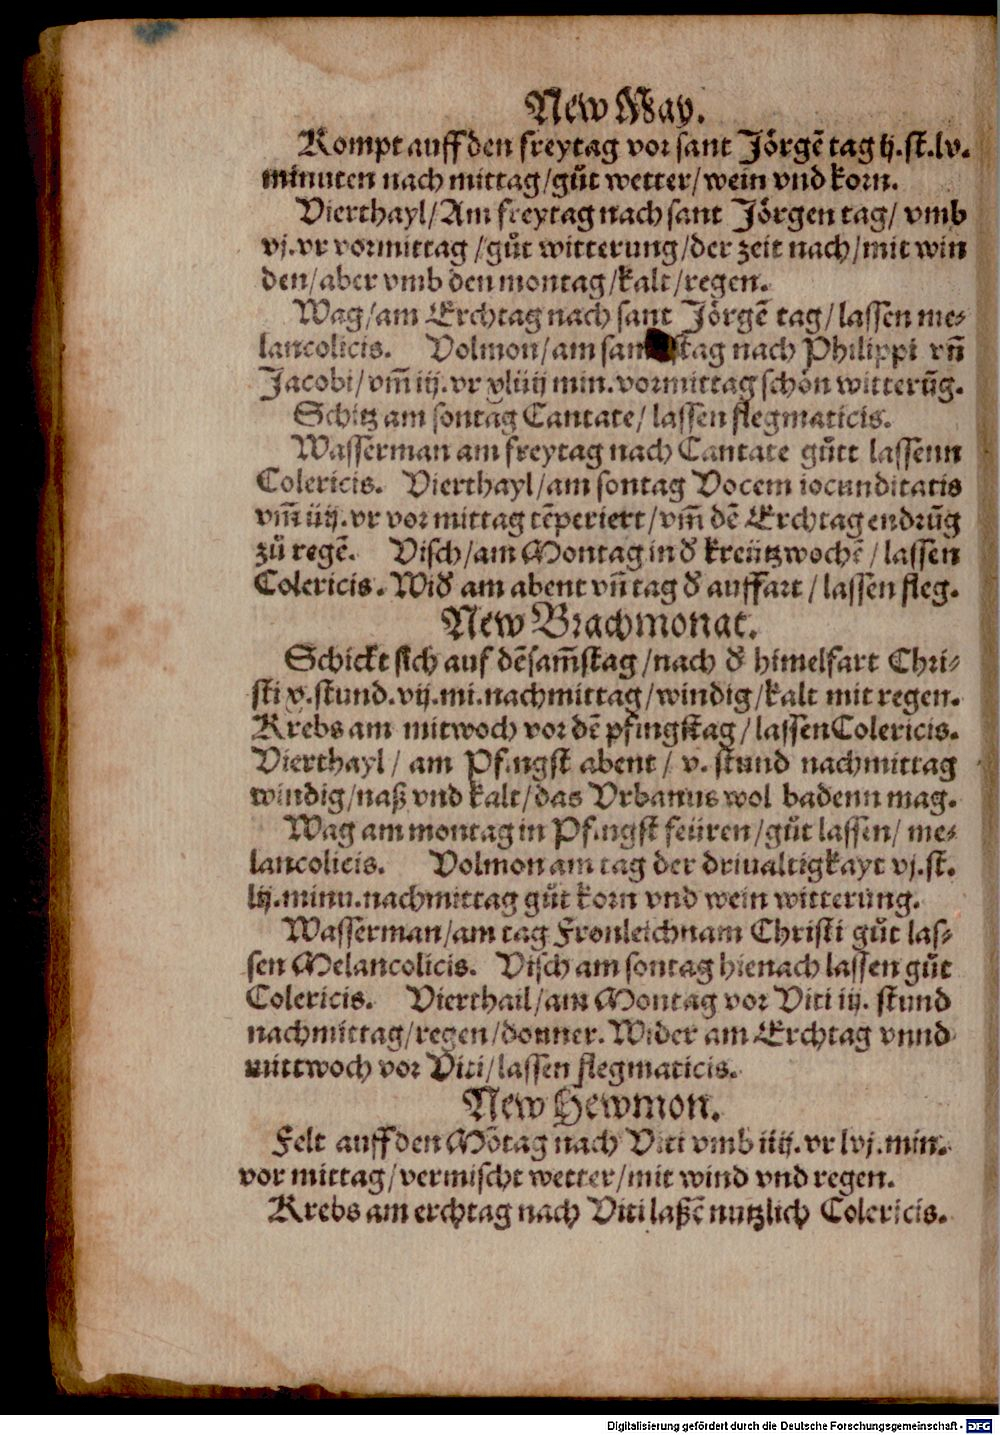 New May.
Kompt auff den freytag vor sant Jörgē tag ij.st.lv.
minuten nach mittag/gůt wetter/wein vnd korn.
Vierthayl/Am freytag nach sant Jörgen tag/ vmb
vj.vr vormittag /gůt witterung/der zeit nach/mit win
den/aber vmb den montag/kalt/regen.
Wag/am Erchtag nach sant Jörgē tag/lassen me-
lancolicis. Volmon/am stag nach Philippi vñ
Jacobi/vm̄ iij.vr xliiij min.vormittag schön witterūg.
Schitz am sontag Cantate/ lassen flegmaticis.
Wasserman am freytag nach Cantate gůtt lassenn
Colericis. Vierthayl/am sontag Vocem iocunditatis
vm̄ iiij.vr vor mittag tēperiert/vm̄ dē Erchtag endrūg
zů regē. Visch/am Montag in d̕ kreützwochē /lassen
Colericis. Wid̕ am abent vñ tag d̕ auffart /lassen fleg.
New Brachmonat.
Schickt sich auf dē sam̄stag/nach d̕ himelfart Chri-
sti v.stund.vij.mi.nachmittag/windig/kalt mit regen.
Krebs am mitwoch vor dē pfingstag/lassen Colericis.
Vierthayl/ am Pfingst abent/ v. stund nachmittag
windig/naß vnd kalt/das Vrbanus wol badenn mag.
Wag am montag in Pfingst feüren/gůt lassen/ me-
lancolicis. Volmon am tag der driualtigkayt vj.st.
lij.minu.nachmittag gůt korn vnd wein witterung.
Wasserman/am tag Fronleichnam Christi gůt las-
sen Melancolicis. Visch am sontag hienach lassen gůt
Colericis. Vierthail/am Montag vor Viti iij. stund
nachmittag/regen/donner. Wider am Erchtag vnnd
mittwoch vor Viti/lassen flegmaticis.
New Hewmon.
Felt auff den Mōtag nach Viti vmb iiij.vr lvj.min.
vor mittag/vermischt wetter/mit wind vnd regen.
Krebs am erchtag nach Viti laßē nutzlich Colericis.
Digitalisierung gefördert durch die Deutsche Forschungsgemeinschaft - DFG